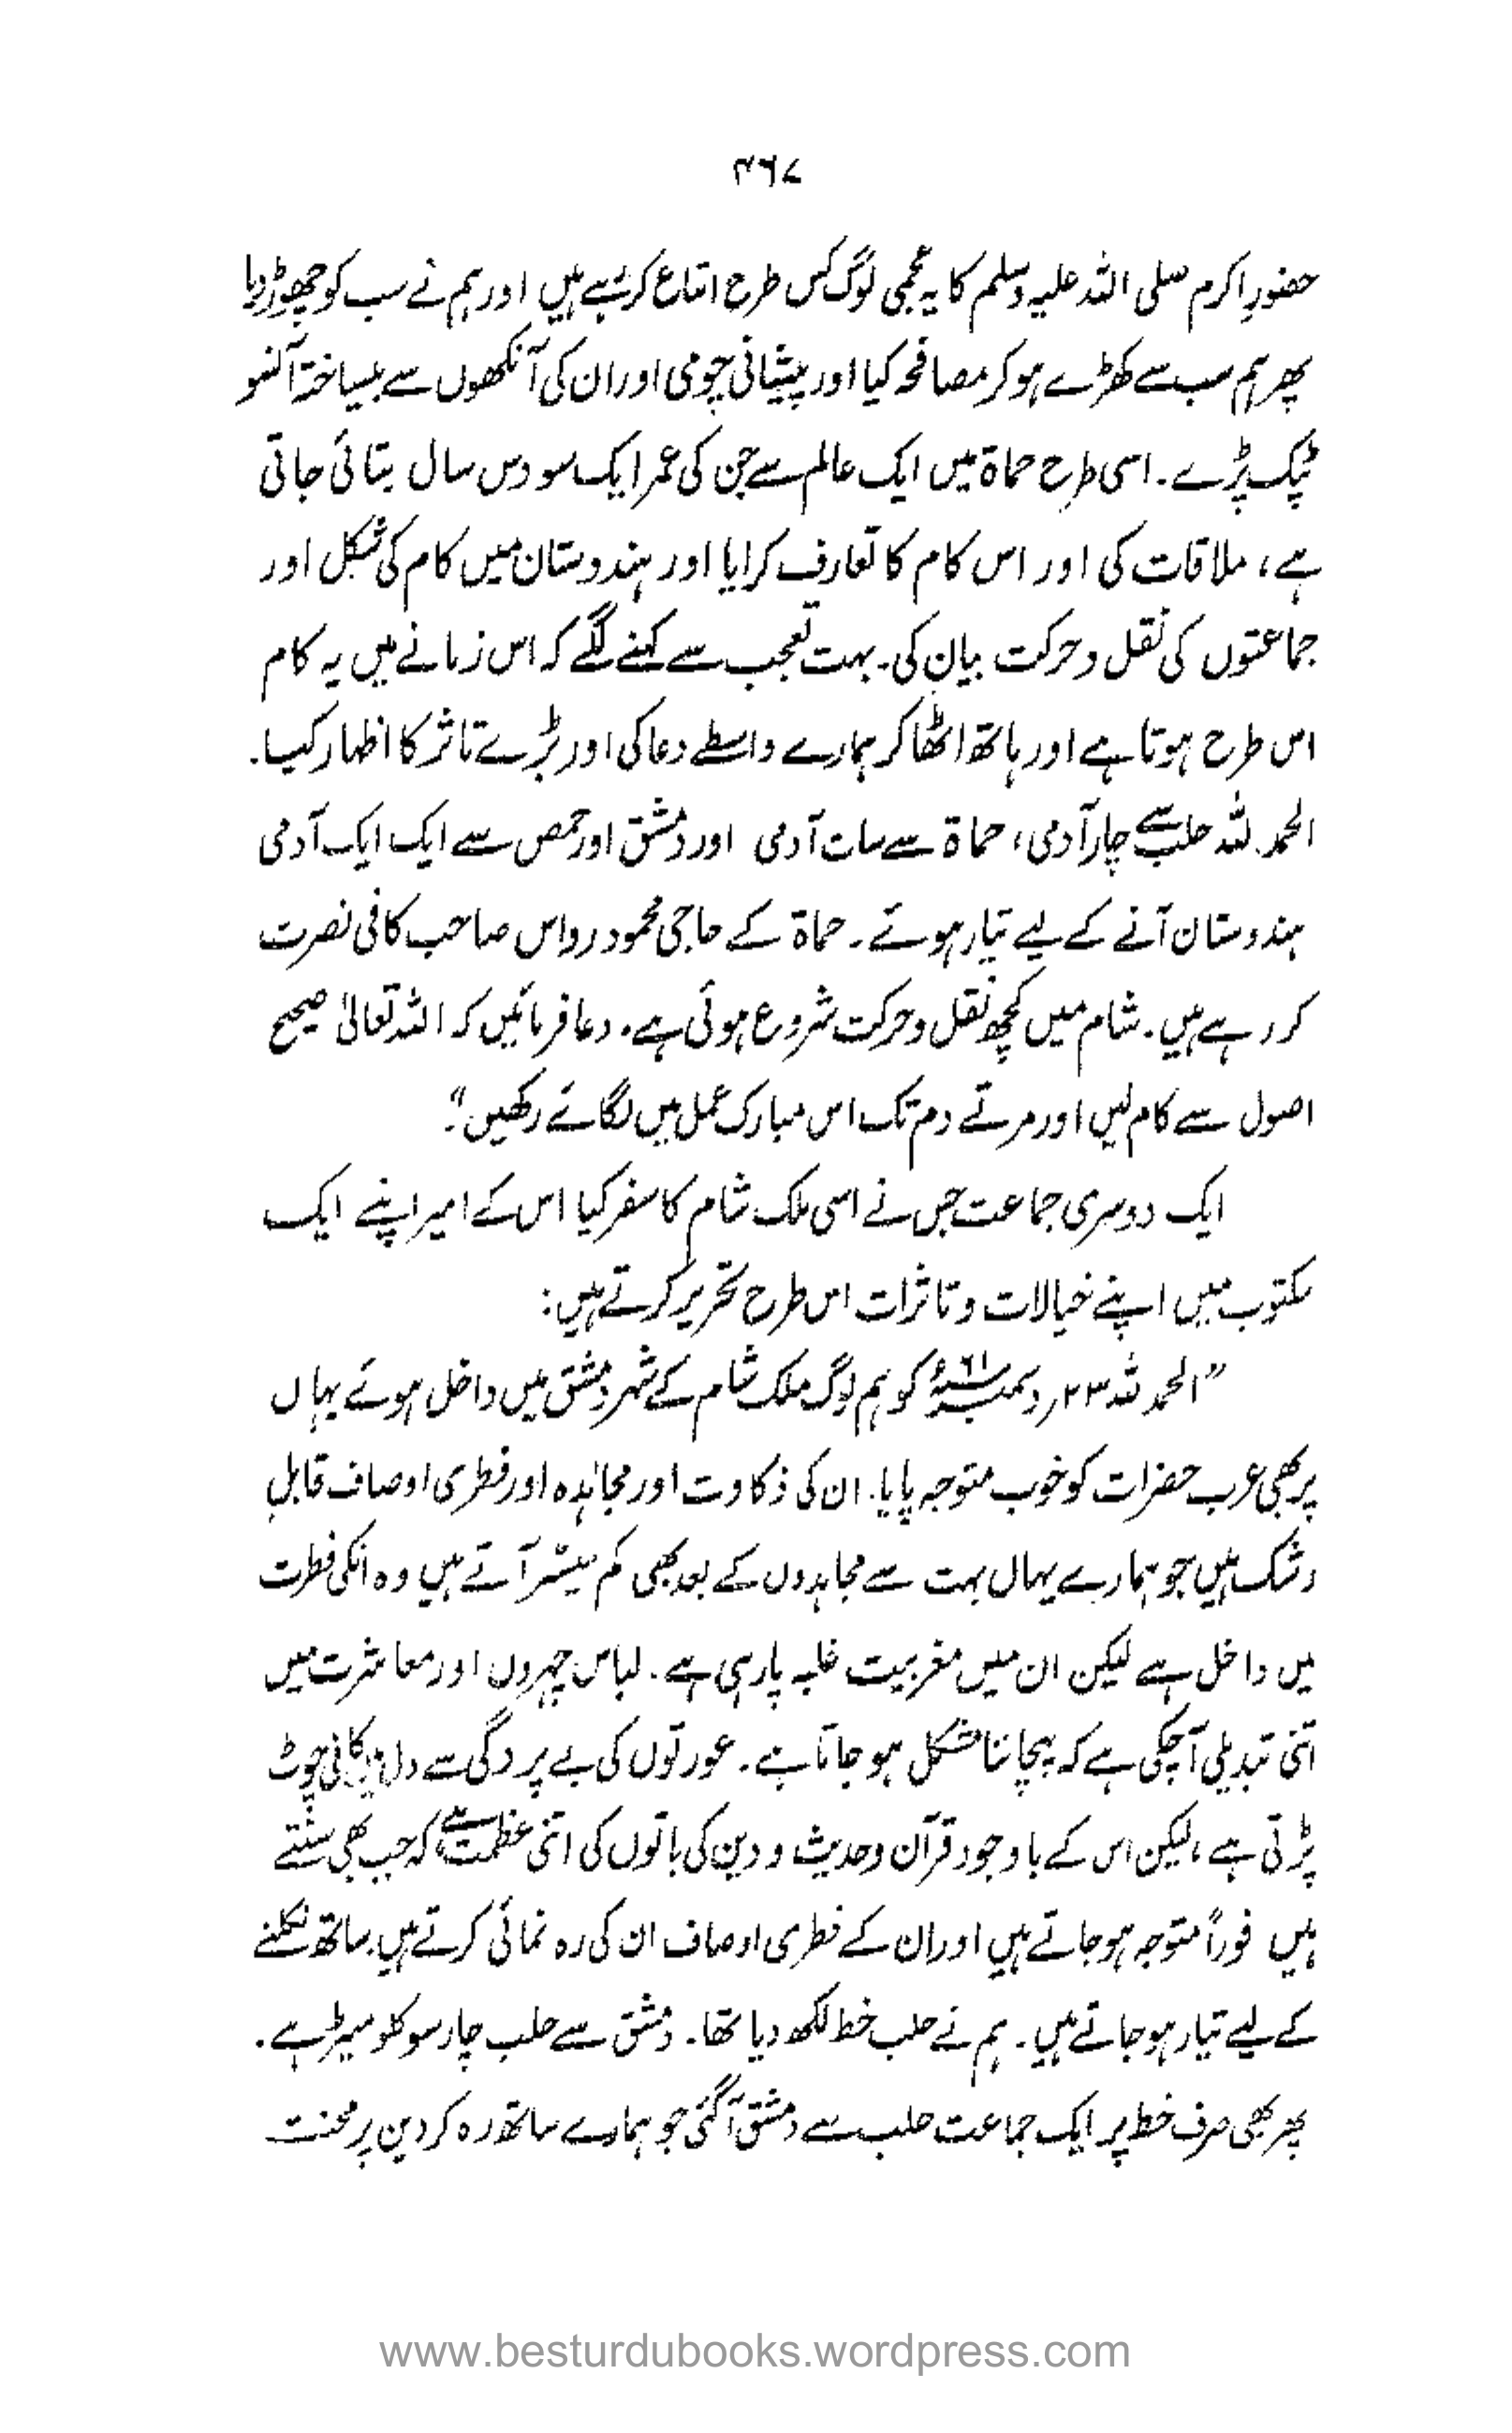 ۴۶۷
حضورِ اکرم صلی اللہ علیہ وسلم کا یہ عجمی لوگ کس طرح اتباع کر رہے ہیں اور ہم نے سب کو چھوڑ دیا
پھر ہم سب سے کھڑے ہو کر مصافحہ کیا اور پیشانی چومی اور ان کی آنکھوں سے بیساختہ آنسو
ٹپک پڑے۔ اسی طرح حماۃ میں ایک عالم سے جن کی عمر ایک سو دس سال بتائی جاتی
ہے، ملاقات کی اور اس کام کا تعارف کرایا اور ہندوستان میں کام کی شکل اور
جماعتوں کی نقل و حرکت بیان کی۔ بہت تعجب سے کہنے لگے کہ اس زمانے میں یہ کام
اس طرح ہوتا ہے اور ہاتھ اٹھا کر ہمارے واسطے دعا کی اور بڑے تاثر کا اظہار کیا۔
الحمد للہ حلب سے چار آدمی، حماۃ سے سات آدمی اور دمشق اور حمص سے ایک ایک آدمی
ہندوستان آنے کے لیے تیار ہوئے۔ حماۃ کے حاجی محمود رواس صاحب کافی نصرت
کر رہے ہیں۔ شام میں کچھ نقل و حرکت شروع ہوئی ہے۔ دعا فرمائیں کہ اللہ تعالیٰ صحیح
اصول سے کام لیں اور مرتے دم تک اس مبارک عمل میں لگائے رکھیں۔"
ایک دوسری جماعت جس نے اسی ملک شام کا سفر کیا اس کے امیر اپنے ایک
مکتوب میں اپنے خیالات و تاثرات اس طرح تحریر کرتے ہیں:
"الحمد للہ ۲۳؍ دسمبر ۶۱ء کو ہم لوگ ملک شام کے شہر دمشق میں داخل ہوئے یہاں
پر بھی عرب حضرات کو خوب متوجہ پایا۔ ان کی ذکاوت اور مجاہدہ اور فطری اوصاف قابلِ
رشک ہیں جو ہمارے یہاں بہت سے مجاہدوں کے بعد بھی کم میسّر آتے ہیں وہ انکی فطرت
میں داخل ہے لیکن ان میں مغربیت غلبہ پا رہی ہے۔ لباس چہروں اور معاشرت میں
اتنی تبدیلی آچکی ہے کہ پہچاننا مشکل ہو جاتا ہے۔ عورتوں کی بے پردگی سے دل پر کافی چوٹ
پڑتی ہے، لیکن اس کے باوجود قرآن و حدیث و دین کی باتوں کی اتنی عظمت ہے کہ جب بھی سنتے
ہیں فوراً متوجہ ہو جاتے ہیں اور ان کے فطری اوصاف ان کی رہ نمائی کرتے ہیں۔ ساتھ نکلنے
کے لیے تیار ہو جاتے ہیں۔ ہم نے حلب خط لکھ دیا تھا۔ دمشق سے حلب چار سو کلو میٹر ہے۔
پھر بھی صرف خط پر ایک جماعت حلب سے دمشق آگئی جو ہمارے ساتھ رہ کر دین پر محنت
www.besturdubooks.wordpress.com